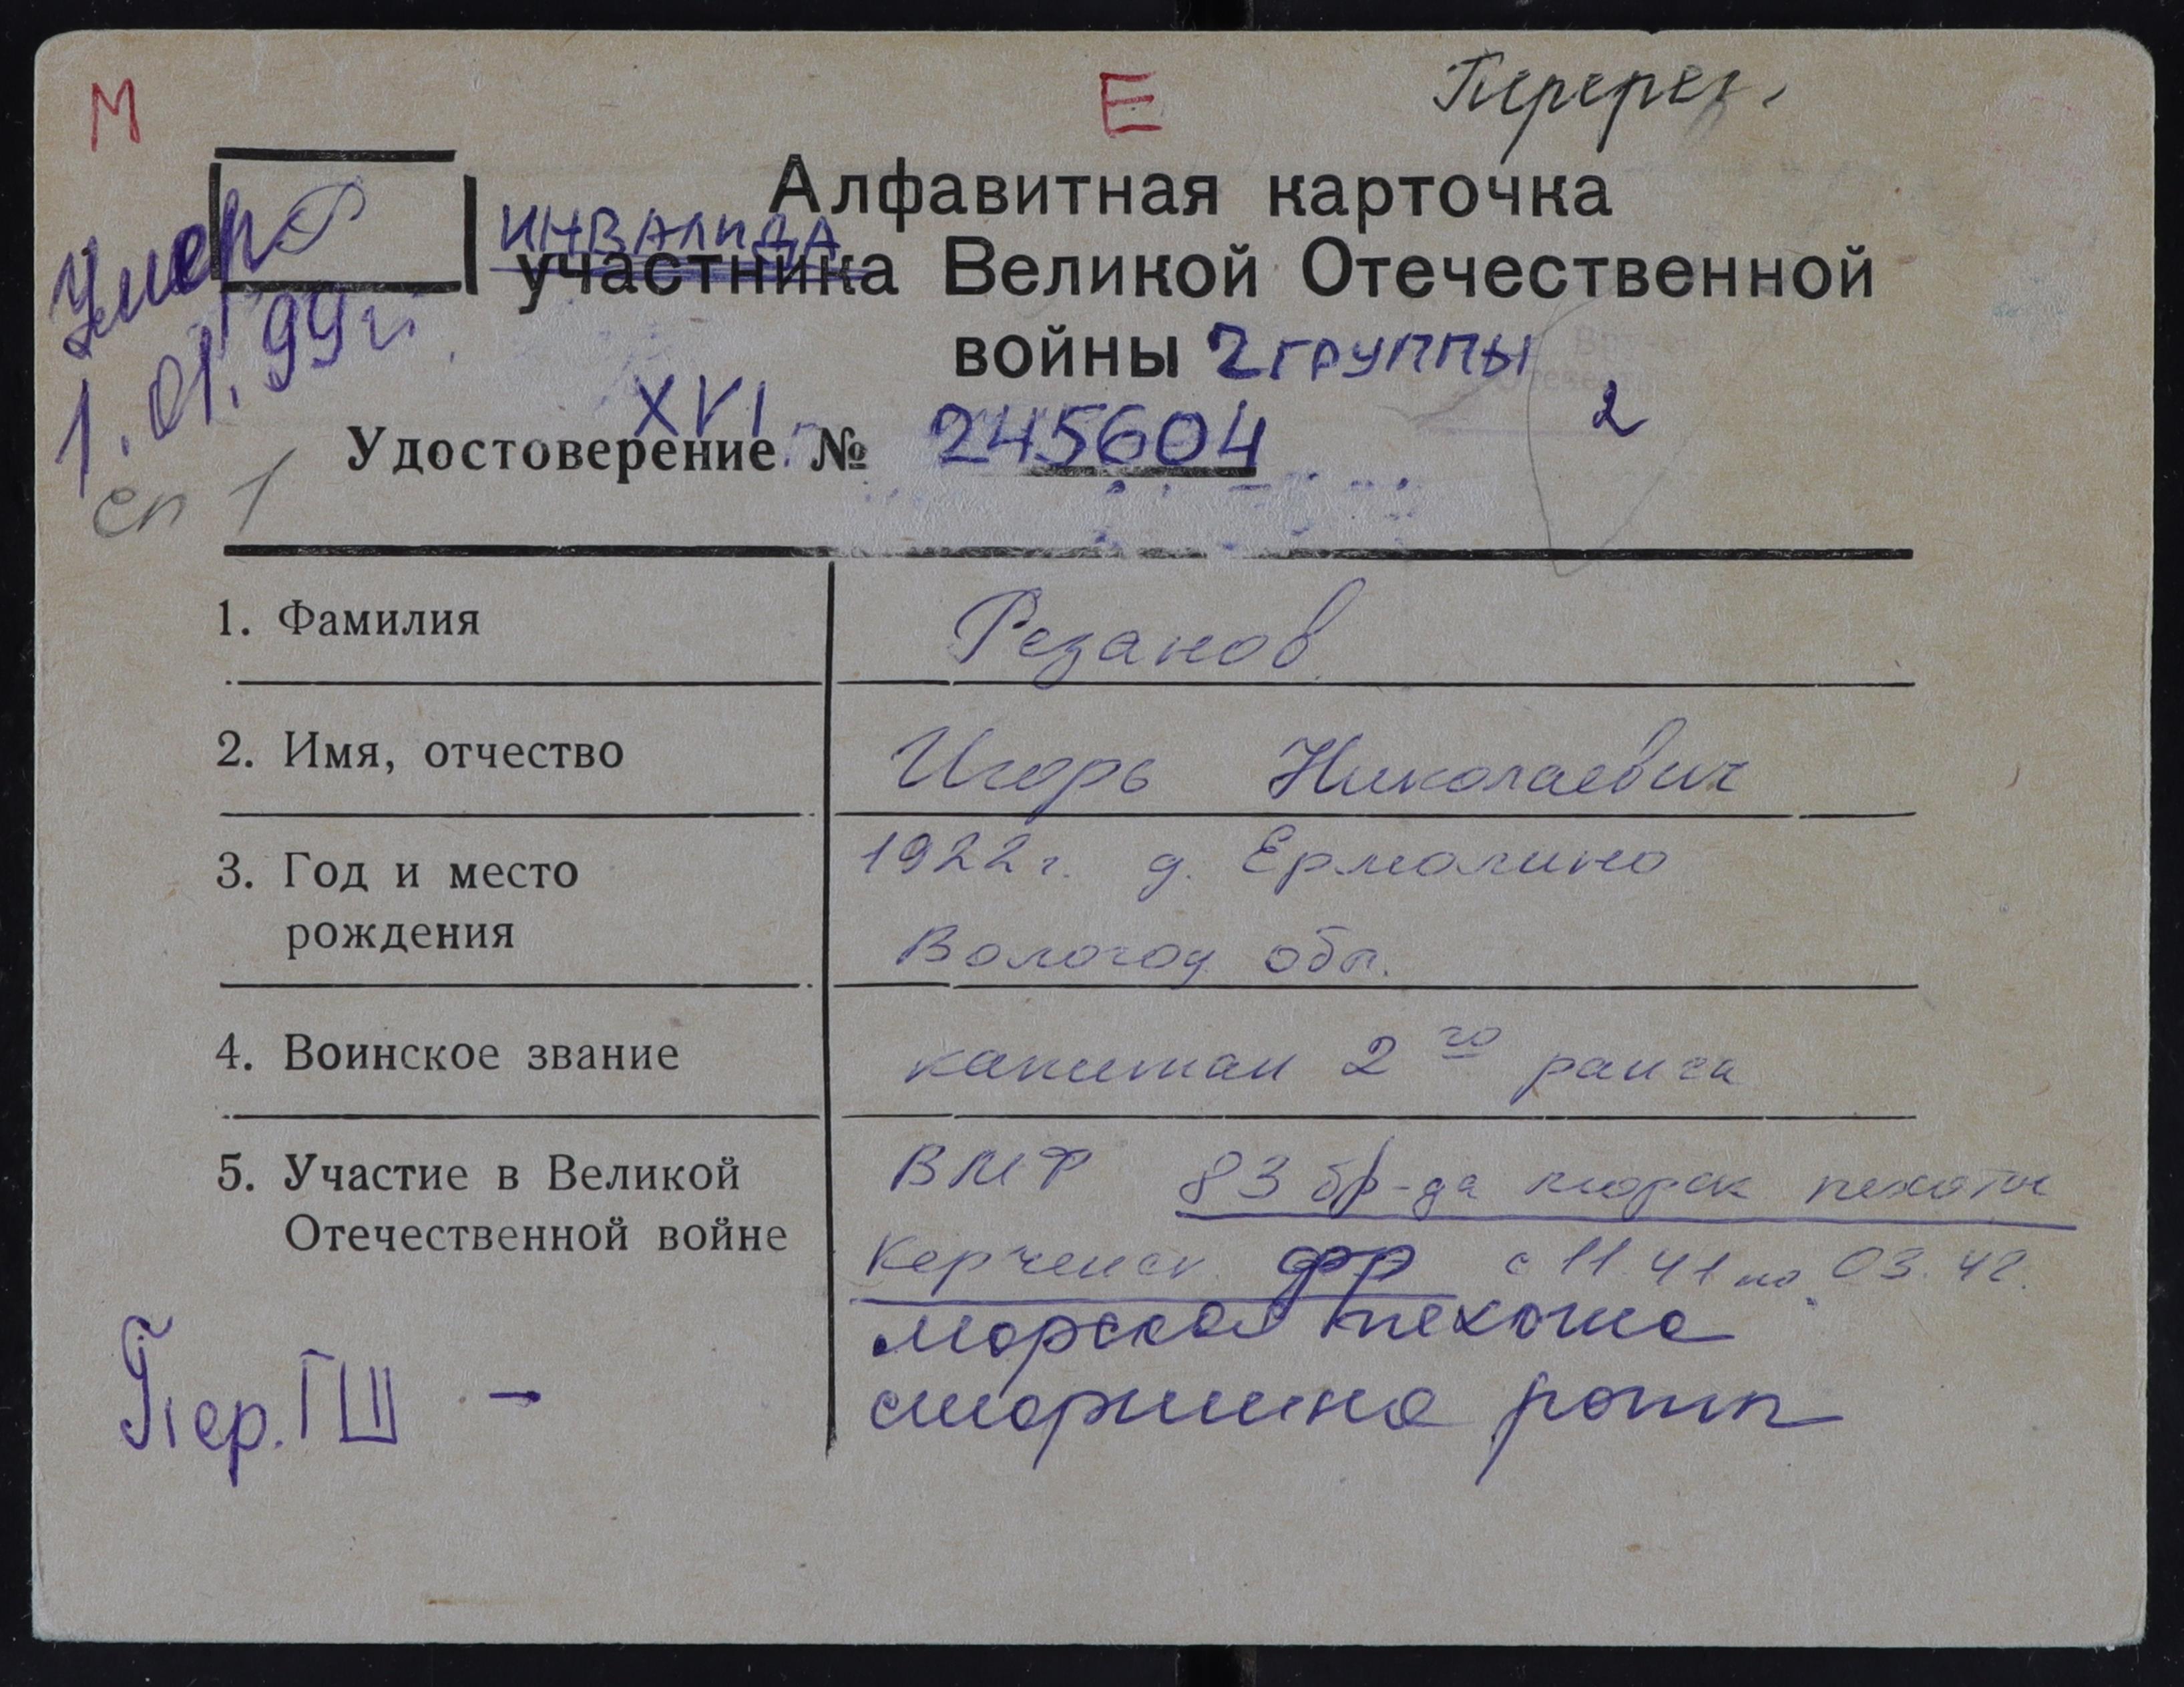 М Е Перерег.
Алфавитная карточка
инвалида
участника Великой Отечественной
войны 2 группы
Умер
1.01.99г.
XVI 2
Удостоверение № 245604
сп 1
1. Фамилия Резанов
2. Имя, отчество Игорь Николаевич
3. Год и место 1922г. д. Ермолино
рождения Вологод обл.
4. Воинское звание капитан 2го ранга
5. Участие в Великой ВМФ 83 бр-да морск пехоты
Отечественной войне Керченск. фр с 11.41 по 03.42.
морская пехота
Пер. ГШ - старшина роты